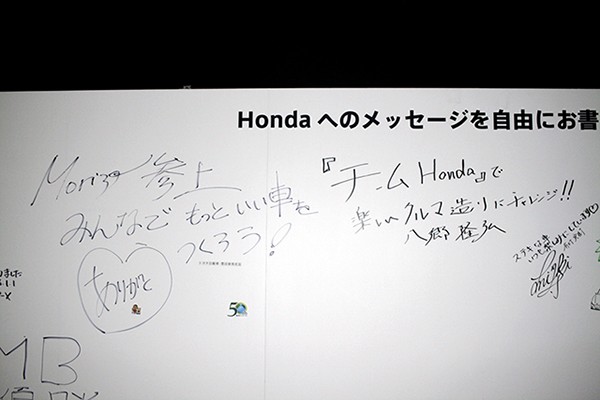 Honda へのメッセージを自由にお書
Morizo 参上
みんなで もっといい車を
つくろう!
ありがとう
『チームHonda』で
楽しいクルマ造りにチャレンジ!!
八郷隆弘
ステキな車
いつも楽しみにしています
50
MB